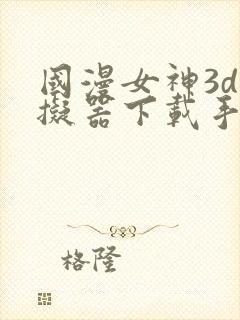 國漫女神3d
擬器下載手
格隆